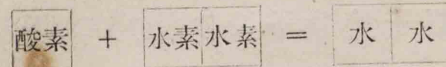 酸素 + 水素水素 = 水 水